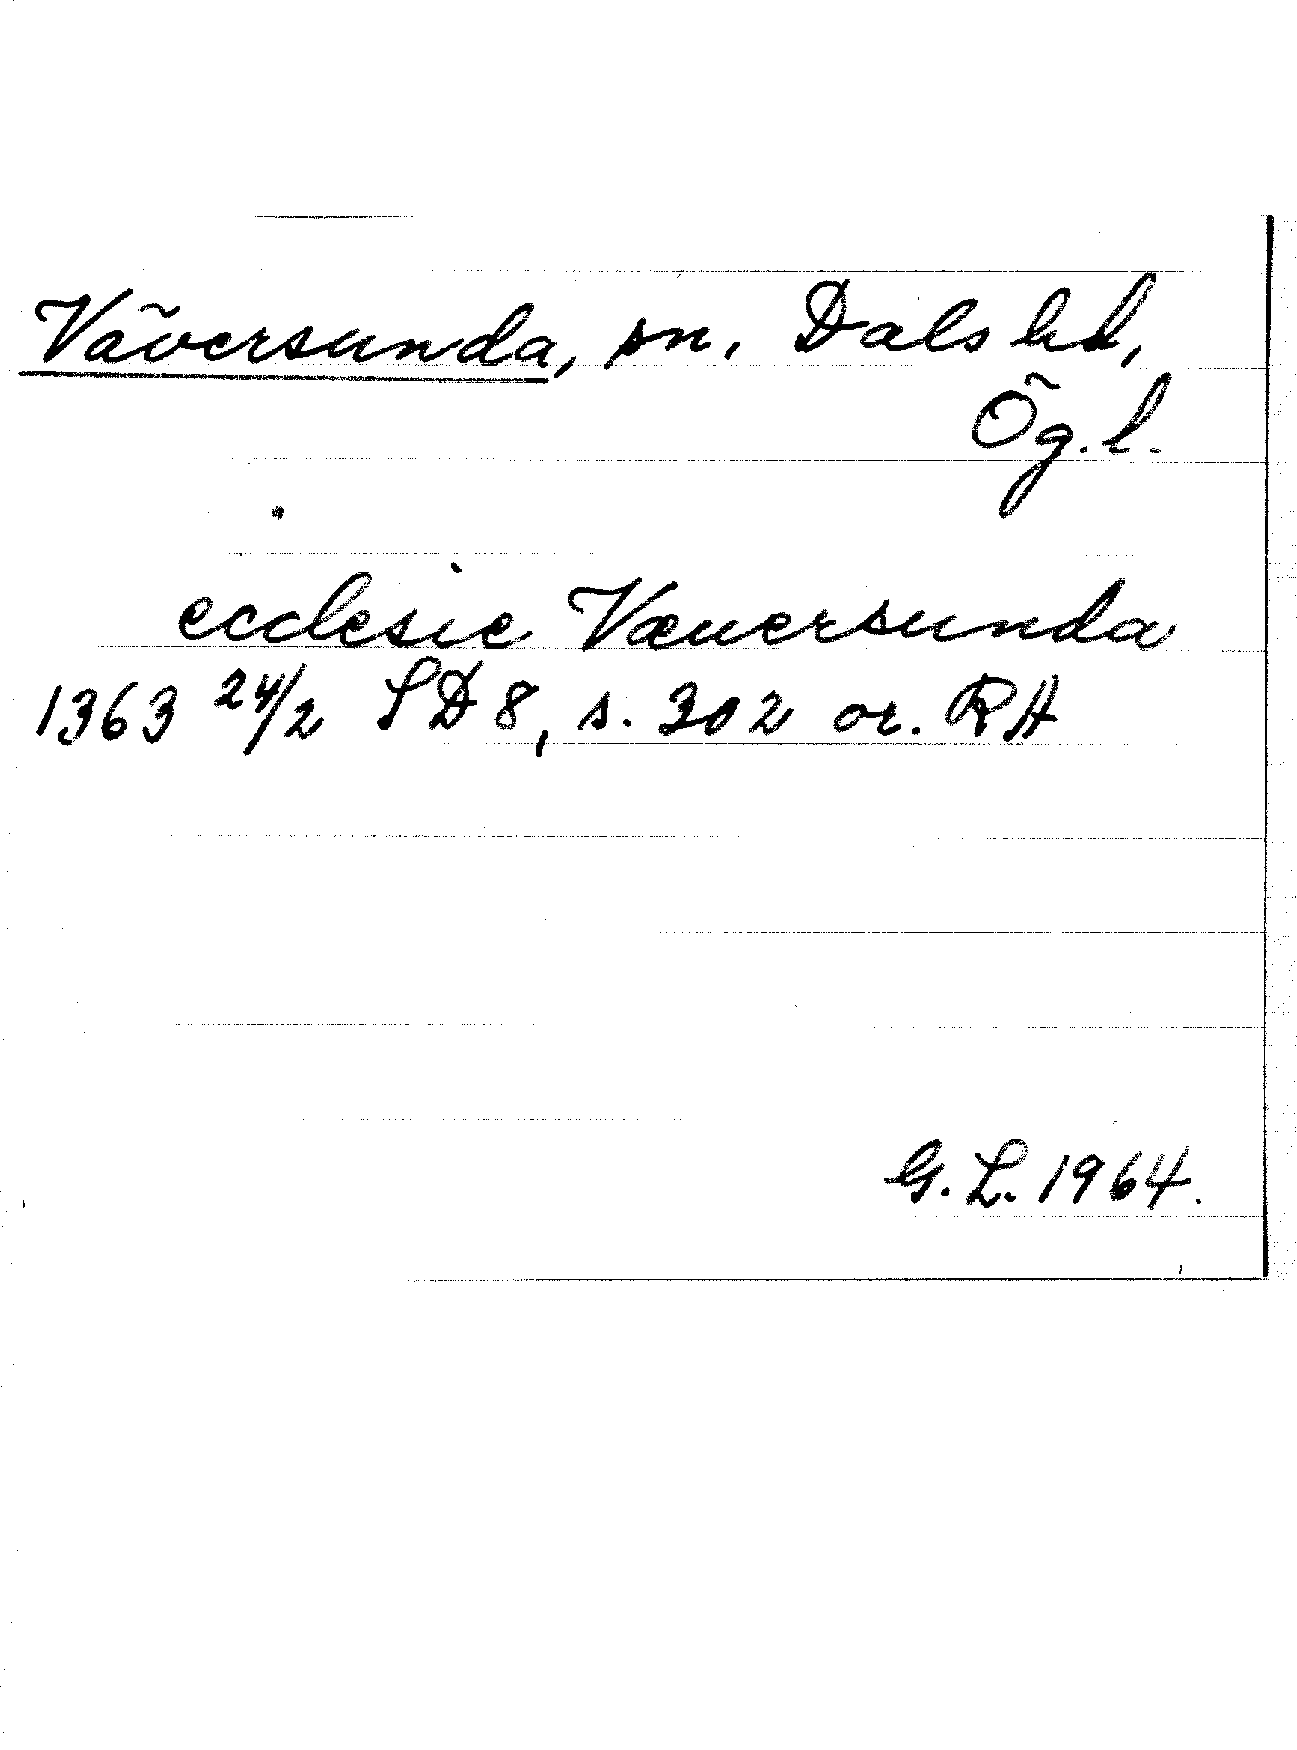 Väversunda, sn. Dals hd,
Ög. l.
ecclesie Væuersunda
1363 24/2 SD 8, s. 302 or. RA
G. L. 1964.